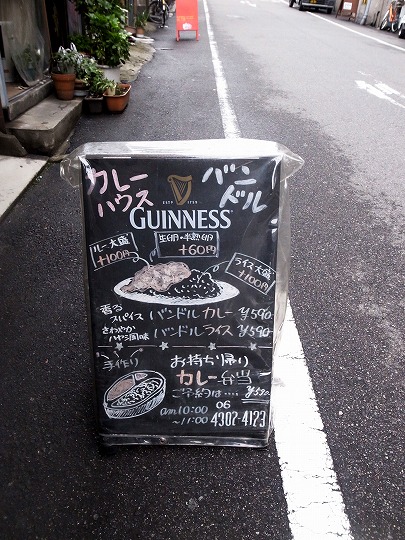 カレー
ハウス
バンドル
ESTD 1759
GUINNESS
ルー大盛
+100円
生卵・半熟卵
+60円
ライス大盛
+100円
香る
スパイス バンドルカレー ¥590-
さわやか
ハヤシ風の味 バンドルライス ¥590-
手作り
お持ち帰り
カレー弁当
ご予約は‥‥ ¥590
am10:00
~11:00
06
4302-4123